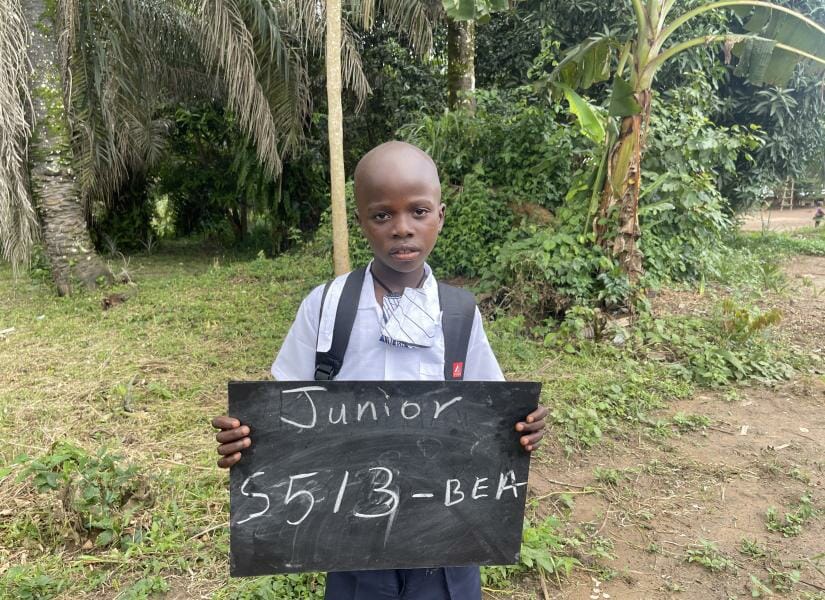 Junior
S513-BEA